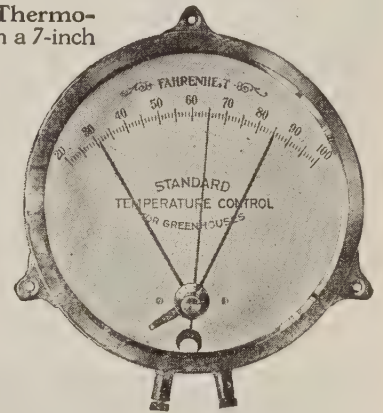 Thermo-
n a 7-inch
FAHRENHEIT
20 30 40 50 60 70 80 90 100
STANDARD
TEMPERATURE CONTROL
FOR GREENHOUSES